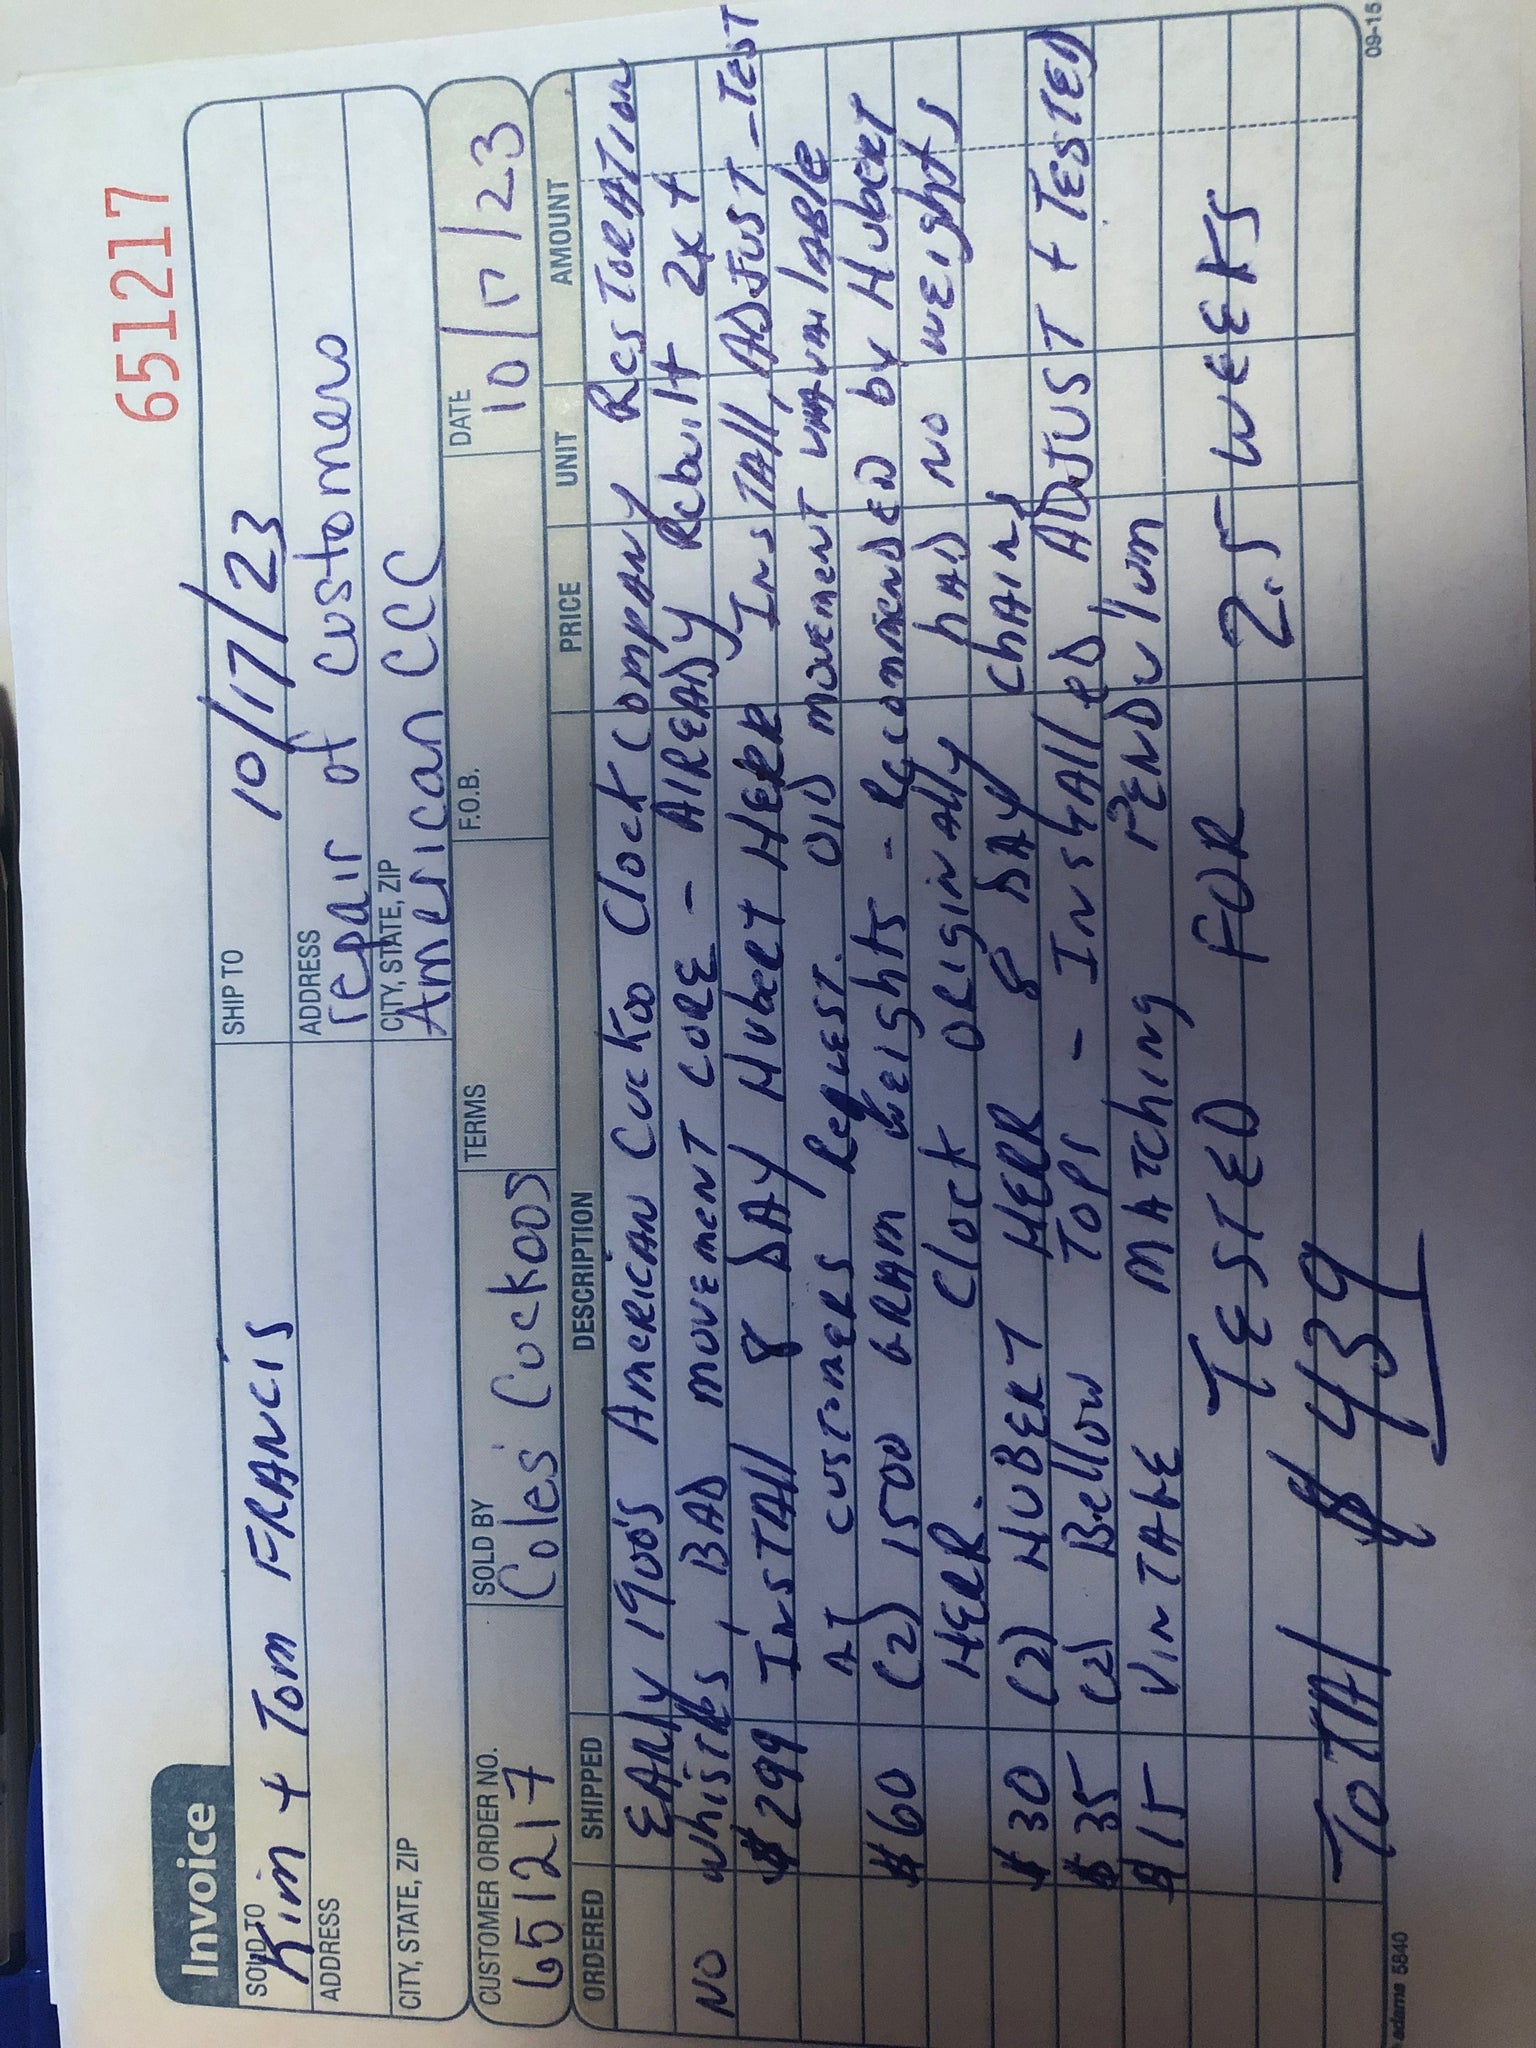 651217
Invoice
SOLD TO
Kim + Tom FRANCIS
ADDRESS
CITY, STATE, ZIP
SHIP TO
10/17/23
ADDRESS
repair of customers
CITY, STATE, ZIP
American CCC
CUSTOMER ORDER NO.
651217
SOLD BY
Coles' Cuckoos
TERMS
F.O.B.
DATE
10/17/23
ORDERED SHIPPED DESCRIPTION PRICE UNIT AMOUNT
EARly 1900's AmERICAN CuckOO Clock COMPANY RESTORATION
NO whistles, BAD MOVEMENT CORE - AlREADY REbuilt 2x +
$ 299 InsTAll 8 DAY HubERT HERR InsTAll, ADJUST - TEST
AT CUSTOMERS REQUEST. OlD MOVEMENT UNAVAILABLE
$ 60 (2) 1500 GRAM WEIGHTS - RECOMMENDED by HubERT
HERR. Clock ORIGINALLY HAD NO WEIGHTS
$ 30 (2) HUBERT HERR 8 DAY CHAINS
$ 35 (2) Bellow TOPS - InsTAllED ADJUST + TESTED
$ 15 VINTAGE MATCHING PENDulum
TESTED FOR 2.5 WEEKS
TOTAl $ 439
adams 5840
09-15